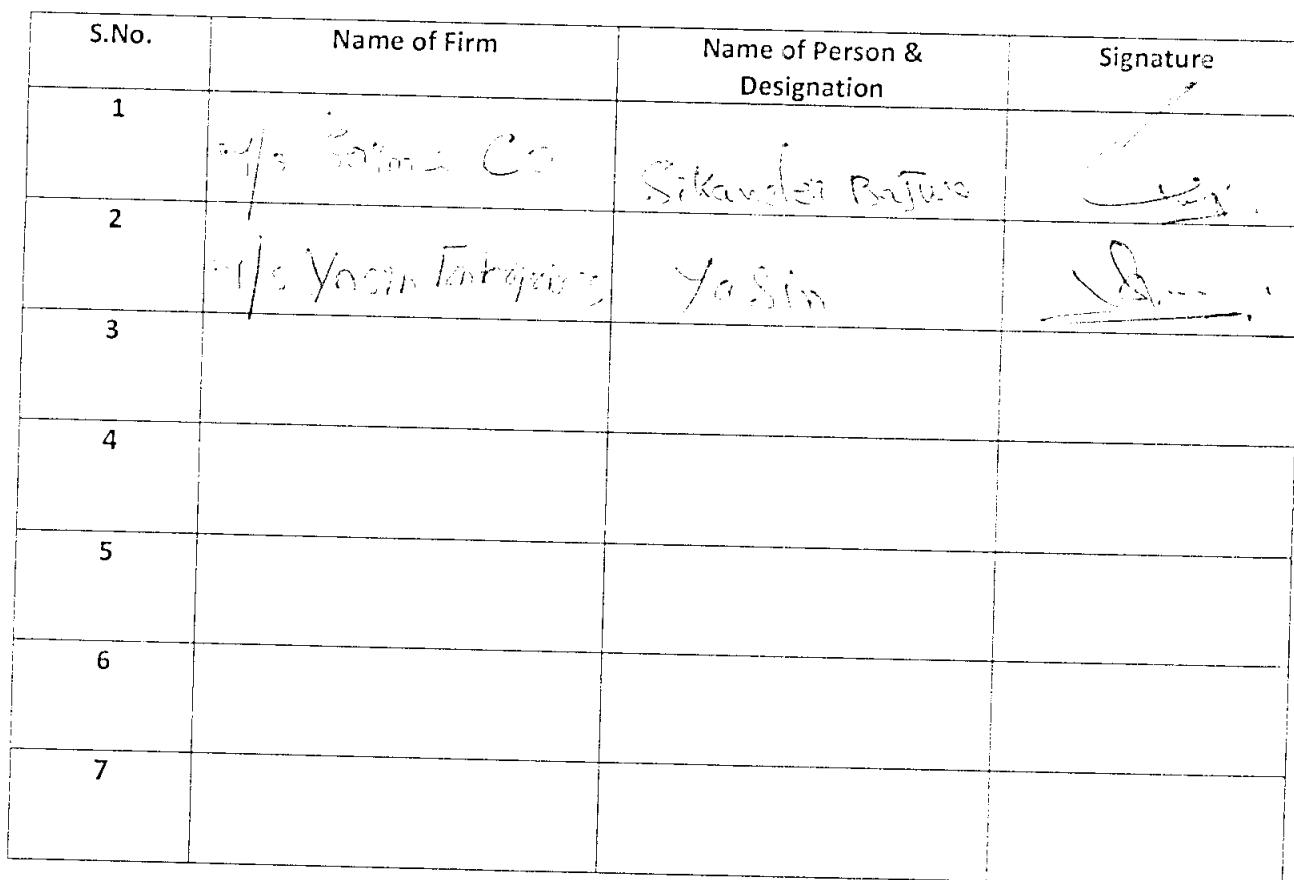 S.No. Name of Firm Name of Person & Designation Signature
1 M/s Co Sikander Bajwa
2 M/s Yasin Enterprises Yasin
3
4
5
6
7